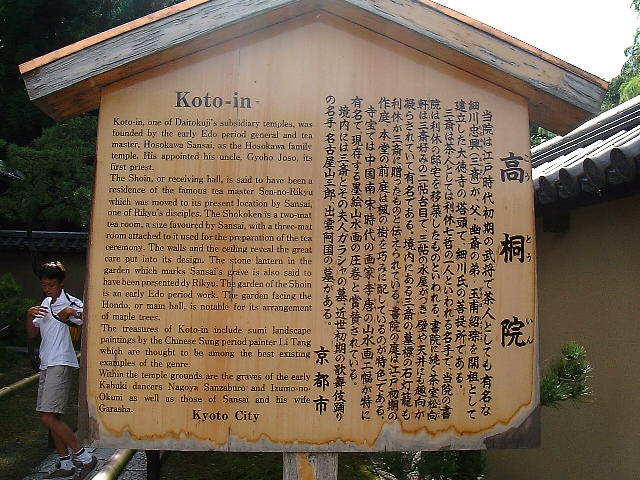 Koto-in
Koto-in, one of Daitokuji's subsidiary temples, was
founded by the early Edo period general and tea
master, Hosokawa Sansai, as the Hosokawa family
temple. His appointed his uncle, Gyoho Joso, its
first priest.
The Shoin, or receiving hall, is said to have been a
residence of the famous tea master Sen-no-Rikyu
which was moved to its present location by Sansai,
one of Rikyu's disciples. The Shokoken is a two-mat
tea room, a size favoured by Sansai, with a three-mat
room attached to it used for the preparation of the tea
ceremony. The walls and the ceiling reveal the great
care put into its design. The stone lantern in the
garden which marks Sansai's grave is also said to
have been presented by Rikyu. The garden of the Shoin
is an early Edo period work. The garden facing the
Hondo, or main hall, is notable for its arrangement
of maple trees.
The treasures of Koto-in include sumi landscape
paintings by the Chinese Sung period painter Li Tang
which are thought to be among the best existing
examples of the genre.
Within the temple grounds are the graves of the early
Kabuki dancers Nagoya Sanzaburo and Izumo-no-
Okuni as well as those of Sansai and his wife
Garasha.
Kyoto City
高桐院
こう とう いん
当院は江戸時代初期の武将で茶人としても有名な
細川忠興(三斎)が、父・幽斎の弟・玉甫紹琮を開祖として
建立した大徳寺の塔頭で、細川氏の菩提所である。
三斎は茶人としては利休七哲の一人といわれる名手で、当院の書
院は利休の邸宅を移築したものといわれ、書院に続く茶室松向
軒は三斎好みの二帖台目で三帖の水屋がつき、壁や天井にも趣向が
凝らされていて有名である。境内にある三斎の墓標の石灯籠も
利休が三斎に贈ったものと伝えられている。書院の庭は江戸初期の
作庭、本堂の前庭は楓の樹を巧みに配しているのが特色である。
寺宝では中国南宋時代の画家李唐の山水画二幅が特に
有名で、現存する墨絵山水画の圧巻と賞賛されている。
境内には三斎とその夫人ガラシャの墓、近世初期の歌舞伎踊り
の名手、名古屋山三郎、出雲阿国の墓がある。
京都市